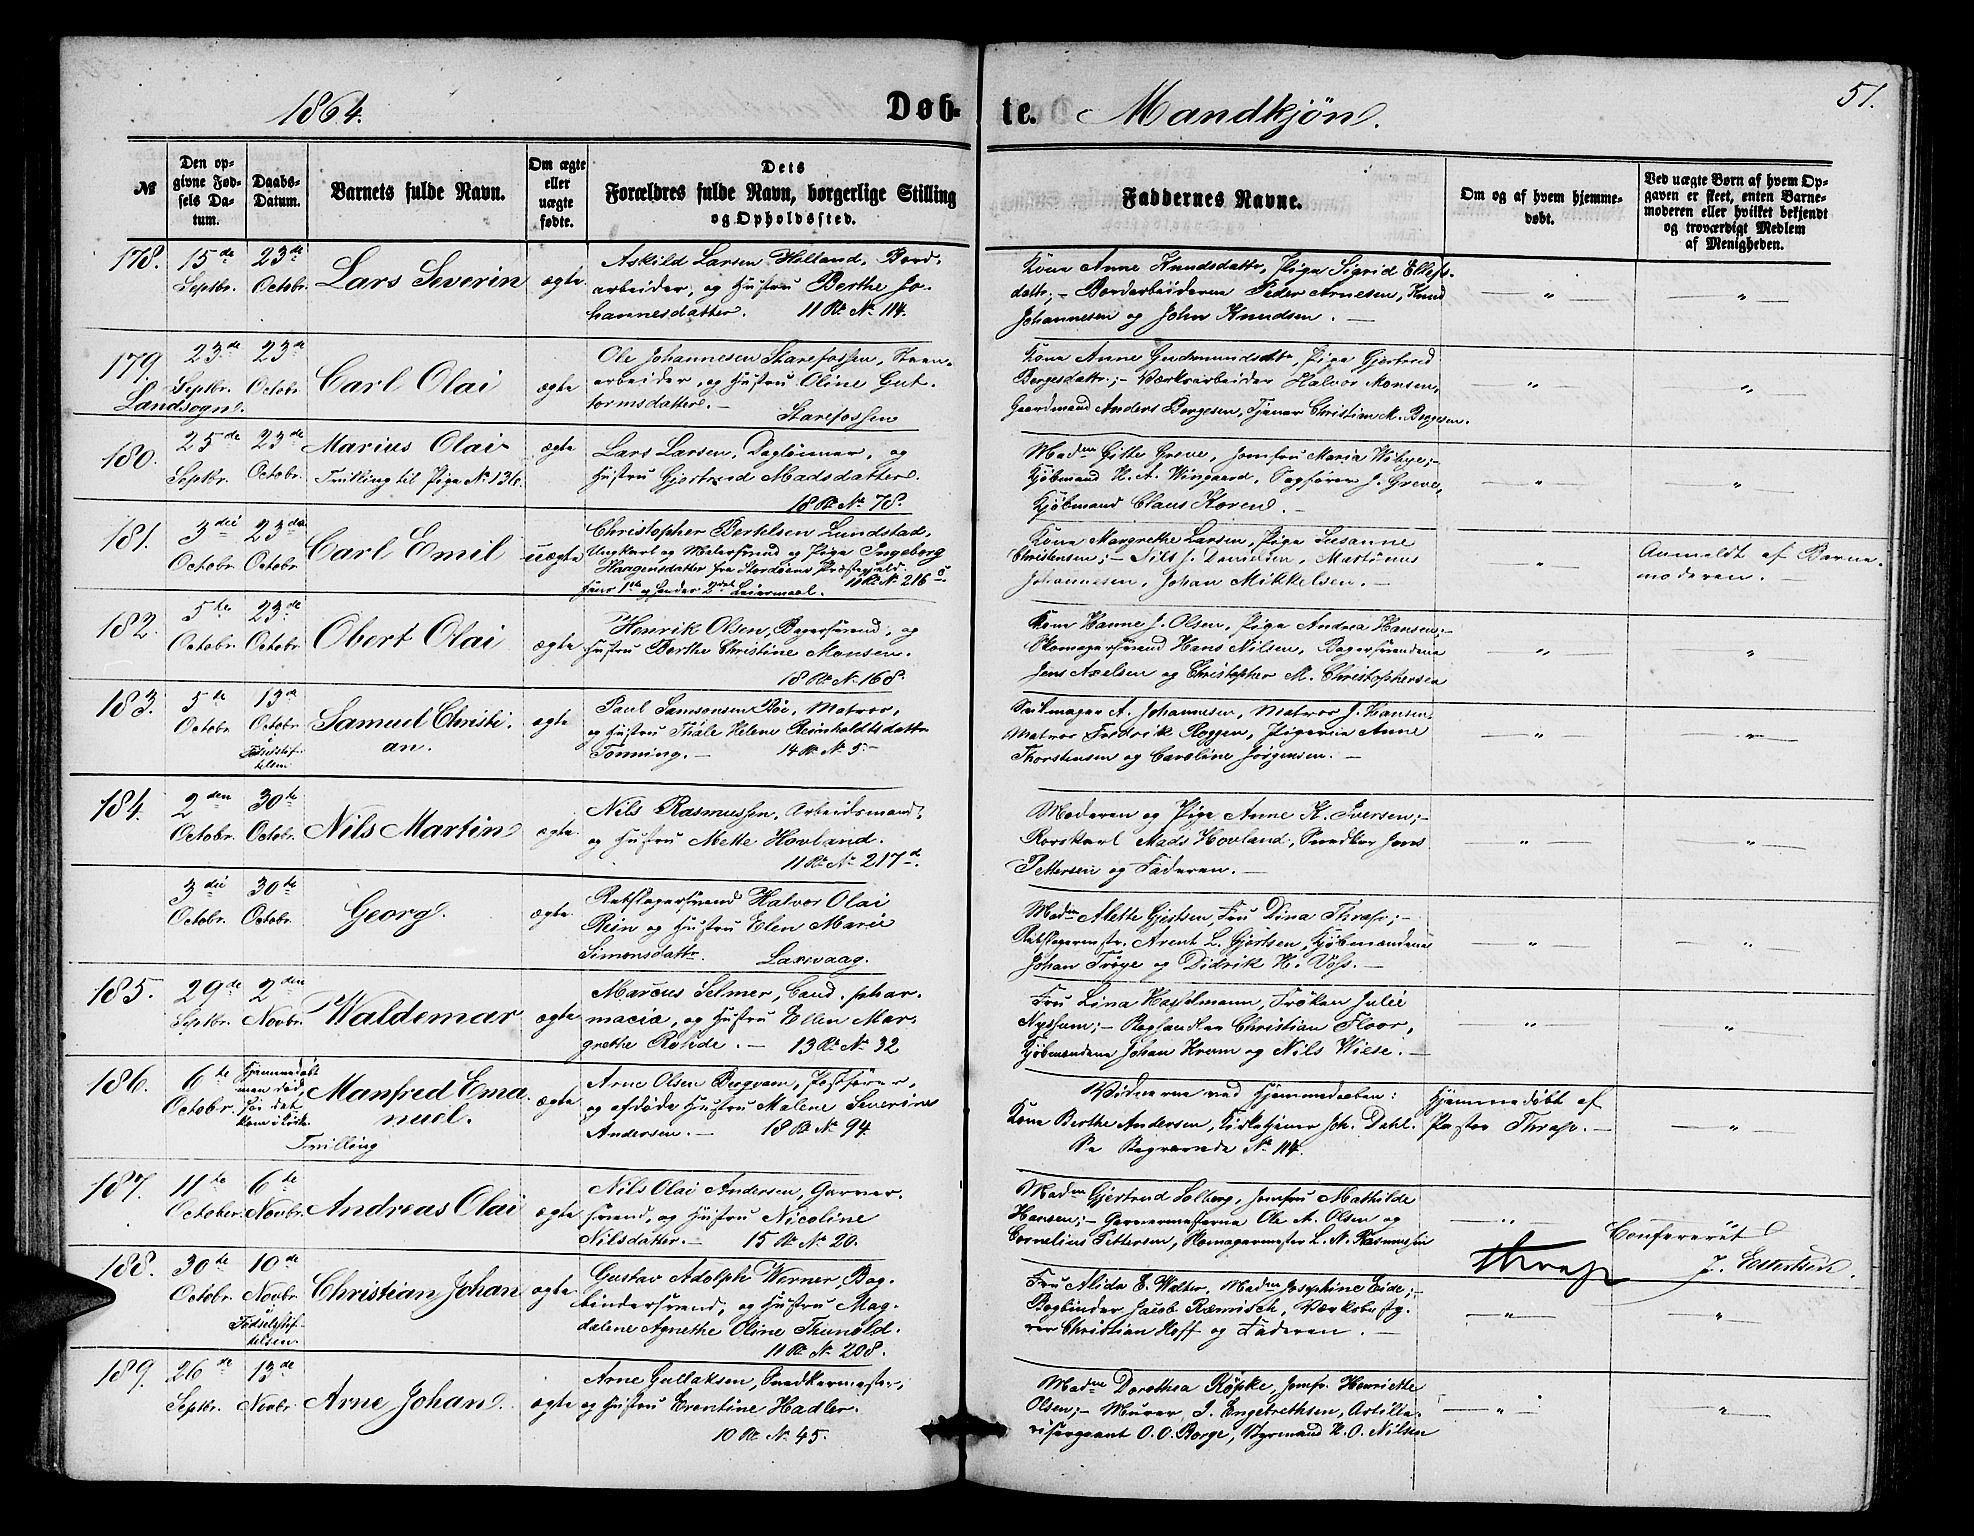 1864.
Døb-
te. Mandkjøn.
51.
№
Den op-
givne Fød-
sels Da-
tum.
Daabs-
Datum.
Barnets fulde Navn.
Om ægte
eller
uægte
fødte.
Dets
Forældres fulde Navn, borgerlige Stilling
og Opholdssted.
Faddernes Navne.
Om og af hvem hjemme-
døbt.
Ved uægte Børn af hvem Op-
gaven er skeet, enten Barne-
moderen eller hvilket bekjendt
og troværdigt Medlem
af Menigheden.
178.
15de
Septbr.
23de
Octobr.
Lars Severin
ægte
Askild Larsen Helland, Bord-
arbeider, og Hustru Berthe Jo-
hannesdatter. 11 Rd. No 114.
Kone Anne Knudsdattr, Pige Sigrid Ellefs-
dattr; - Bordarbeiderne Peder Arnesen, Knud
Johannesen og John Knudsen. -
179.
Landsogn.
23de
Septbr.
23de
Octobr.
Carl Olai
ægte
Ole Johannesen Starefossen, Steen-
arbeider, og Hustru Oline Gut-
tormsdatter. -
Starefossen
Kone Anne Gudmundsdattr, Pige Gjertrud
Borgesdattr; - Værksarbeider Halvor Monsen,
Gaardmand Anders Borgesen, Tjener Christian M. Borgesen.
180.
25de
Septbr.
23de
Octobr.
Marius Olai
Tvilling til Pige No 136.
ægte
Lars Larsen, Dagleiner, og
Hustru Gjertrud Madsdatter.
18 Rd. No 78.
Madm Gitte Greve, Jomfru Maria Wibye; -
Kjøbmand H. A. Wingaard, Sagfører J. Greve,
Kjøbmand Claus Koren.
181.
3die
Octobr.
23de
Octobr.
Carl Emil
uægte
Christopher Bertelsen Lundstad,
Ungkarl og Malersvend og Pige Ingeborg
Haagensdatter fra Stordøens Præstegjeld.
hans 1ste og hendes 2det Leiermaal. 11 Rd. No 216
Kone Margrethe Larsen, Pige Susanne
Christensen; - Nils J. Danielsen, Martinus
Johannesen, Johan Mikkelsen. -
Anmeldt af Barne-
moderen. -
182.
5te
Octobr.
23de
Octobr.
Obert Olai
ægte
Henrik Olsen, Bagersvend, og
Hustru Berthe Christine Monsen.
18 Rd. No 168.
Kone Hanne J. Olsen, Pige Andrea Hansen; -
Skomagersvend Hans Nilsen, Bagersvendene
Jens Axelsen og Christopher M. Christophersen
183.
5te
Octobr.
13de
Octobr.
i
Fødselsstif-
telsen
Samuel Christi-
an.
ægte
Paul Samsonsen Bøe, Matros,
og Hustru Thale Helene Reinholdtsdattr
Tønning. - 14 Rd. No 5. -
Seilmager A. Johannesen, Matros J. Hansen,
Matros Fredrik Roggen, Pigerne Anne
Thorstensen og Caroline Jørgensen. -
184.
2den
Octobr.
30te
Octobr.
Nils Martin
ægte
Nils Rasmussen, Arbeidsmand,
og Hustru Mette Hovland.
11 Rd. No 217d.
Moderen og Pige Anne K. Iversen; -
Rorskarl Mads Hovland, Snedker Jens
Pettersen og Faderen. -
3die
Octobr.
30te
Octobr.
Georg.
ægte.
Rebslagersvend Halvor Olai
Rein og Hustru Elen Marie
Simonsdattr. Laxevaag.
Madm Alette Gjertsen, Fru Dina Thrap; -
Rebslagermstr. Arent L. Gjertsen, Kjøbmændene
Johan Trøye og Didrik H. Voss. -
185.
29de
Septbr.
2den
Novbr.
Waldemar
ægte
Marcus Selmer, Cand. phar-
macia, og Hustru Ellen Mar-
grethe Rohde. - 13 Rd. No 32
Fru Lina Hasselmann, Frøken Julie
Nyhuus; - Boghandler Christian Floor,
Kjøbmændene Johan Kram og Nils Wiese. -
186.
6te
Octobr.
Hjemmedøbt
men død,
før det
kom i Kirke.
Manfred Ema-
nuel.
Tvilling
ægte
Arne Olsen Bergvam, Postfører,
og afdøde Hustru Malene Severine
Andersen. - 18 Rd. No 94.
Vidnerne ved Hjemmedaaben:
Kone Berthe Andersen, Kirketjener Joh. Dahl.
Se Begravede No 114.
Hjemmedøbt af
Pastor Thrap. -
187.
11te
October.
6te
Novbr.
Andreas Olai
ægte
Nils Olai Andersen, Garver-
svend, og Hustru Nicoline
Nilsdatter. - 15 Rd. No 20.
Madm Gjertrud Solberg, Jomfru Mathilde
Hansen; - Garvermesterne Ole A. Olsen og
Cornelius Pettersen, Skomagermester L. N. Rasmussen
Confereret
Thrap
188.
30te
Octobr.
10de
Novbr.
i
Fødselsstif-
telsen.
Christian Johan
ægte
Gustav Adolph Werner, Bog-
bindersvend, og Hustru Mag-
dalene Agnethe Oline Thunold.
11 Rd. No 208.
Fru Alida E. Walter, Madm Josephine Eide; -
Bogbinder Jacob Ræmisch, Værksbesty-
rer Christian Hoff og Faderen. -
189.
26de
Septbr.
13de
Novbr.
Arne Johan
ægte
Arne Gullaksen, Snedkermester,
og Hustru Erentine Hadler.
10 Rd. No 45.
Madm Dorothea Køpke, Jomfr. Henriette
Olsen; - Murer J. Engebrethsen, Artille-
risergeant O. O. Borge, Styrmand K. O. Nilsen